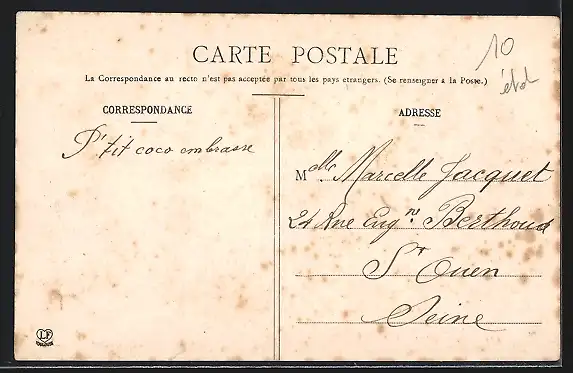 CARTE POSTALE
La Correspondance au recto n'est pas acceptée par tous les pays etrangers. (Se renseigner a la Poste.)
CORRESPONDANCE
P'tit coco embrasse
ADRESSE
Melle Marcelle Jacquet
24 Rue Eugne Berthoud
St Ouen
Seine
10
LF